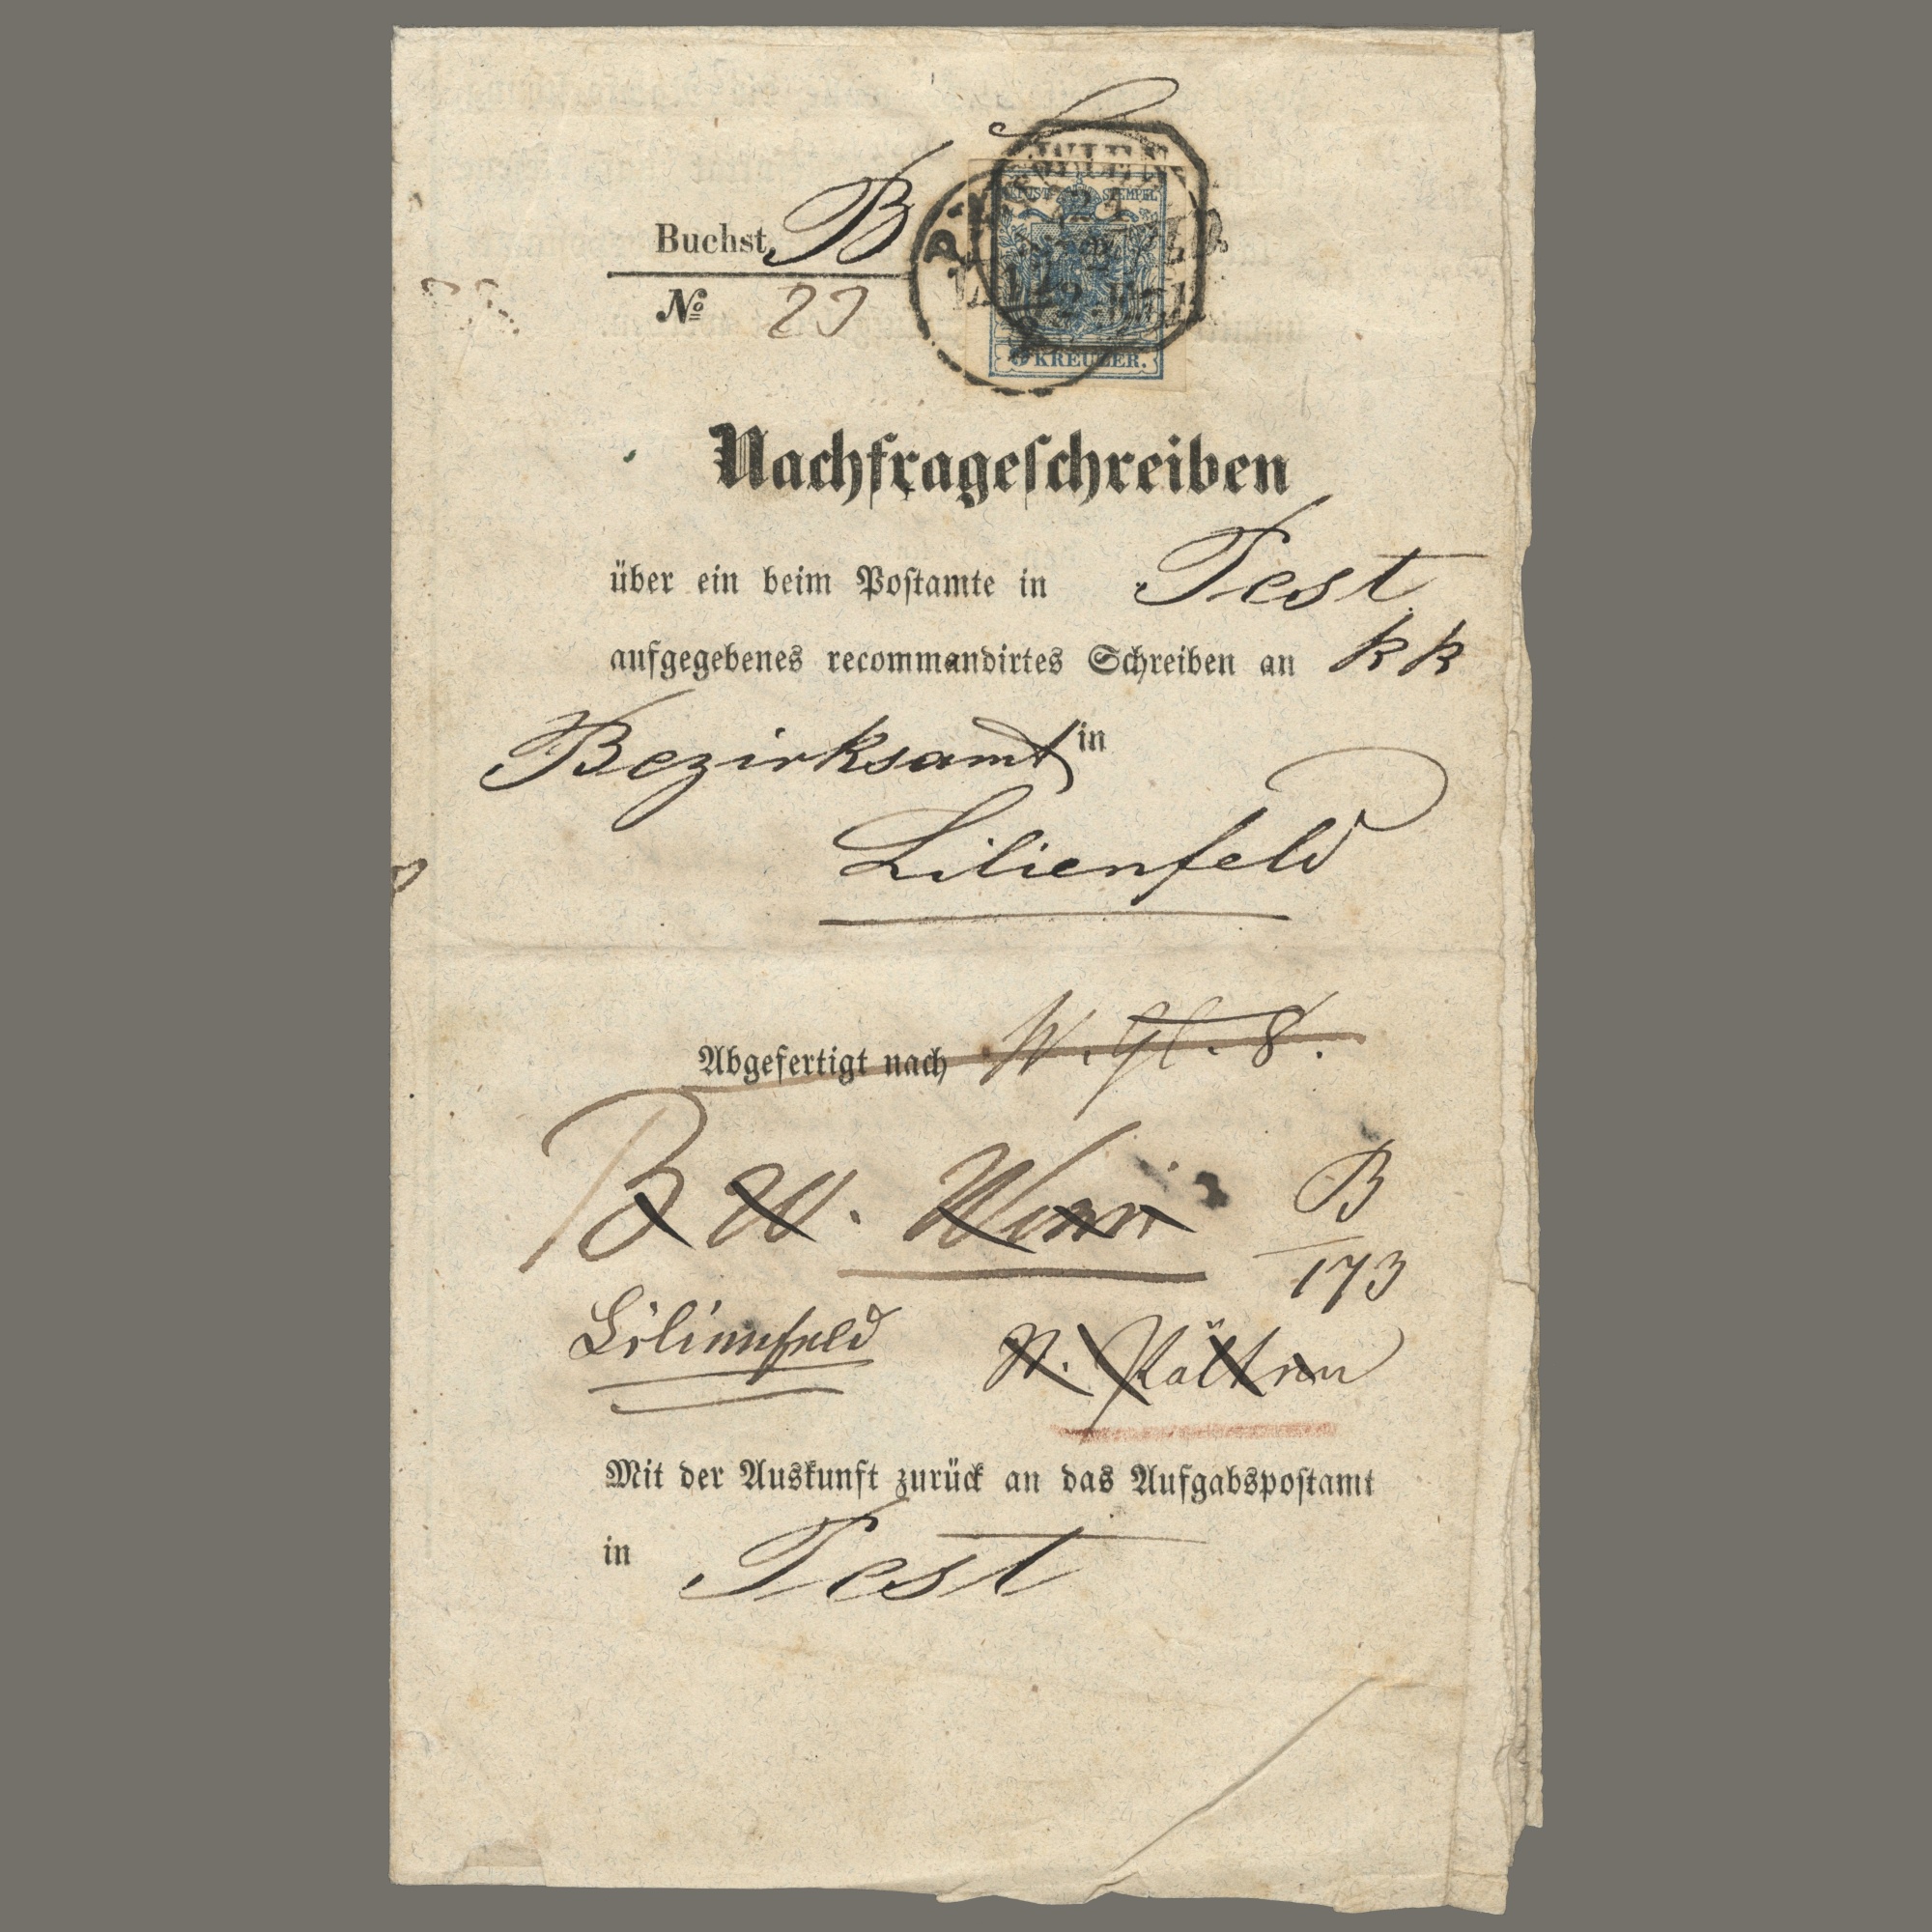 WIEN
21
K.K. POST-STEMPEL
9 KREUZER.
Buchst. B
№ 23
Nachfrageſchreiben
über ein beim Poſtamte in Pest
aufgegebenes recommandirtes Schreiben an kk
Bezirksamt in
Lilienfeld
Abgefertigt nach W. 8.
B W. Wien
B
173
Lilienfeld St. Pölten
Mit der Auskunft zurück an das Aufgabspoſtamt
in Pest